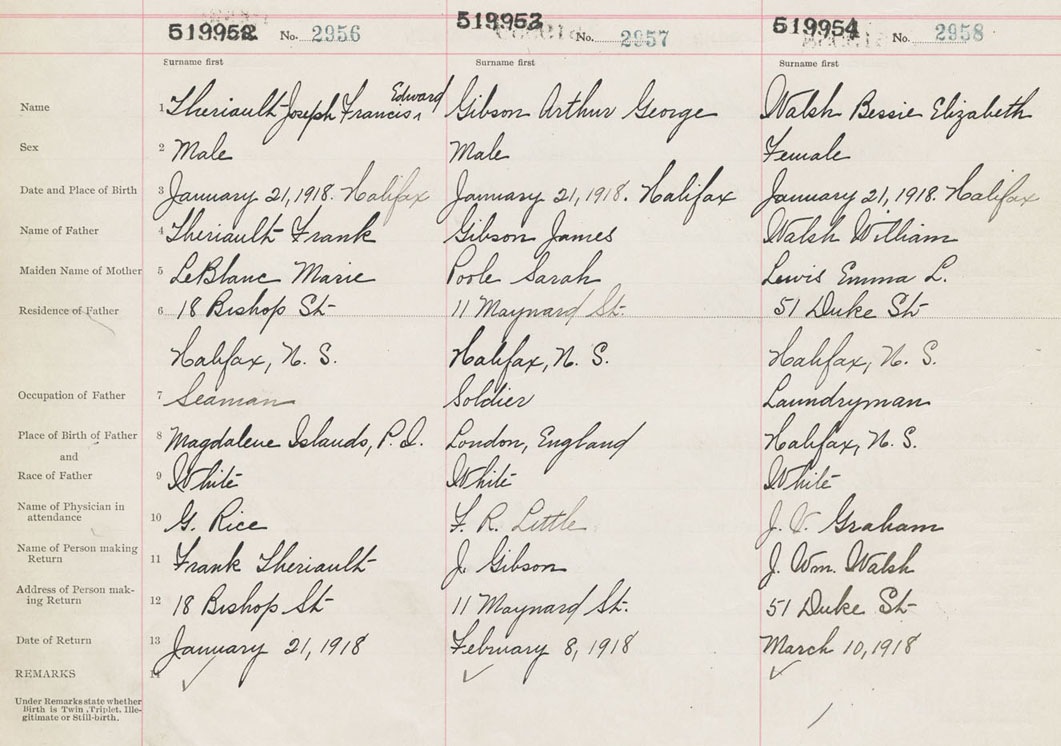 519952 No. 2956 519953 No. 2957 519954 No. 2958
Surname first Surname first Surname first
Edward
Name 1 Theriault Joseph Francis, Gibson Arthur George Walsh Bessie Elizabeth
Sex 2 Male Male Female
Date and Place of Birth 3 January 21, 1918. Halifax January 21, 1918. Halifax January 21, 1918. Halifax
Name of Father 4 Theriault Frank Gibson James Walsh William
Maiden Name of Mother 5 LeBlanc Marie Poole Sarah Lewis Emma L.
Residence of Father 6 18 Bishop St 11 Maynard St. 51 Duke St
Halifax, N. S. Halifax, N. S. Halifax, N. S.
Occupation of Father 7 Seaman Soldier Laundryman
Place of Birth of Father 8 Magdalene Islands, P. I. London, England Halifax, N. S.
and
Race of Father 9 White White White
Name of Physician in
attendance 10 G. Rice F. R. Little J. V. Graham
Name of Person making
Return 11 Frank Theriault J. Gibson J. Wm. Walsh
Address of Person mak-
ing Return 12 18 Bishop St 11 Maynard St. 51 Duke St
Date of Return 13 January 21, 1918 February 8, 1918 March 10, 1918
REMARKS 14
Under Remarks state whether
Birth is Twin, Triplet, Ille-
gitimate or Still-birth.